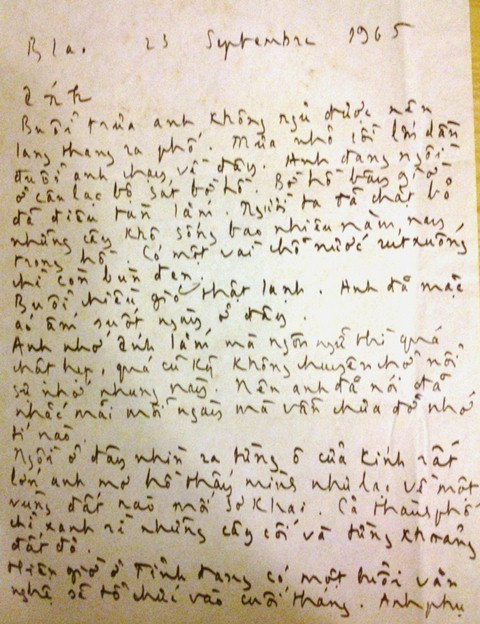 Bla. 23 Septembre 1965
Buổi trưa anh không ngủ được nên
lang thang ra phố. Mưa nhỏ rồi lớn dần
đuổi anh chạy về đây. Anh đang ngồi
ở câu lạc bộ sát bờ hồ. Bờ hồ bây giờ
đã điêu tàn lắm. Người ta đã chặt bỏ
những cây khô sống bao nhiêu năm nay
trong hồ. Có một vài chỗ nước rút xuống
chỉ còn bùn đen.
Buổi chiều gió thật lạnh. Anh đã mặc
áo ấm suốt ngày ở đây.
Anh nhớ lắm mà ngôn ngữ thì quá
chật hẹp, quá cũ kỹ không chuyên chở nổi
sự nhớ nhung này. Nên anh đã nói đã
nhắc mãi mỗi ngày mà vẫn chưa đỡ nhớ
tí nào.
Ngồi ở đây nhìn ra từng ô cửa kính rất
lớn anh mơ hồ thấy mình như lạc về một
vùng đất nào mới sơ khai. Cả thành phố
chỉ xanh rì những cây cối và từng khoảng
đất đỏ.
Hiện giờ ở Tỉnh đang có một buổi văn
nghệ sẽ tổ chức vào cuối tháng. Anh phụ